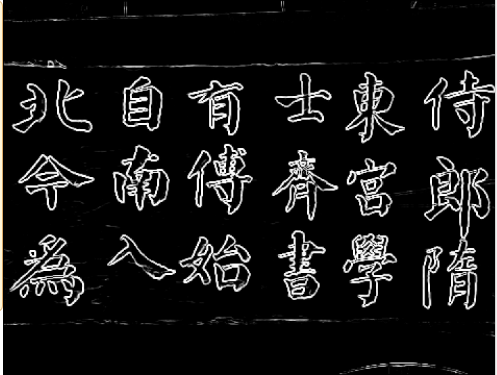 侍郎隋
東宮學
士齊書
有傅始
自南入
北今為